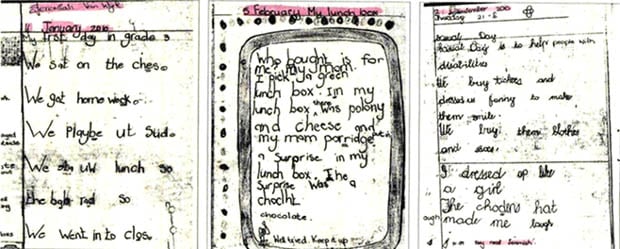 Jeremiah Van Wyk
11 January 2016
My first day in grade 3
We sat on the ches.
We got home wesk.
We Playbe ut Sud.
We uW lunch so
the rad so
We Went in to clos.
5 February My lunch box
Who bought is for
me my mom.
I pick a green
lunch box Im my
lunch box there was polony
and cheese and
my mom porridge
a surprise in my
lunch box. The
Surprise was a
choclht
chocolate.
Well tried. Keep it up
2 September 2016
Casual Day
Casual Day is to help people with
disabilities
We buy tickes and
dressed us funny to make
them smile.
We buy them Clothes
and shoes.
I dressed up like
a girl
The chodens hat
made me lough